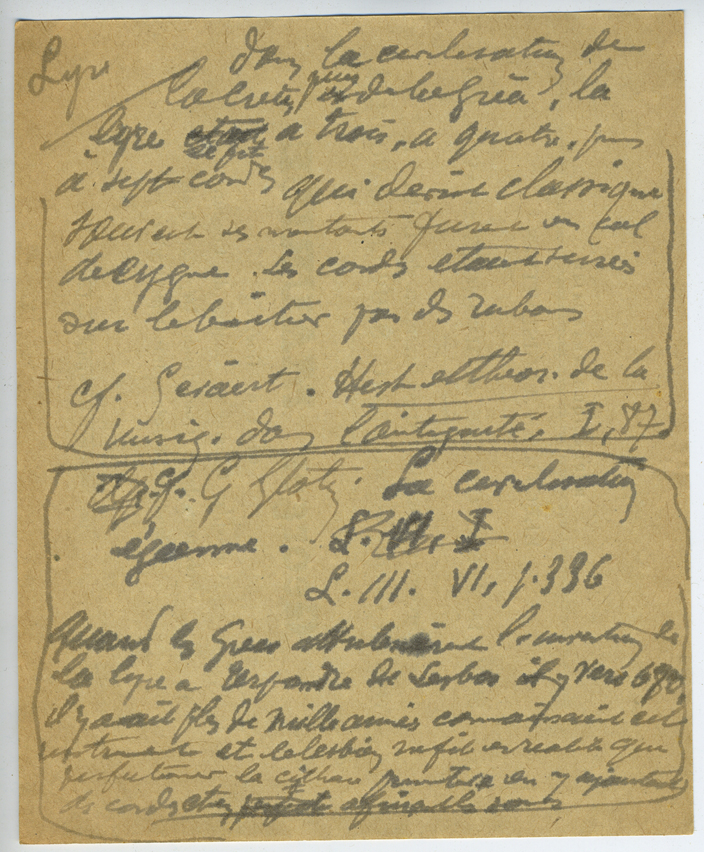 Lyre
dans la civilisation de
la Crète, puis de la Grèce, la
lyre se fit à trois, à quatre, puis
à sept cordes qui devint classique
souvent ses montants furent en col
de cygne. Les cordes étant
sur le boîtier par des rubans
cf. Gevaert. Hist et théor. de la
musiq. dans l'antiquité, I, 87.
cf. G Glotz. La civilisation
égéenne.
L. III. VI, p. 336
Quand les Grecs attribuèrent l'invention de
la lyre à Terpandre de Lesbos vers 670,
il y avait plus de mille années connaissait cet
instrument et le lesbien ne fit en réalité que
perfectionner la cithare primitive en y ajoutant
des cordes